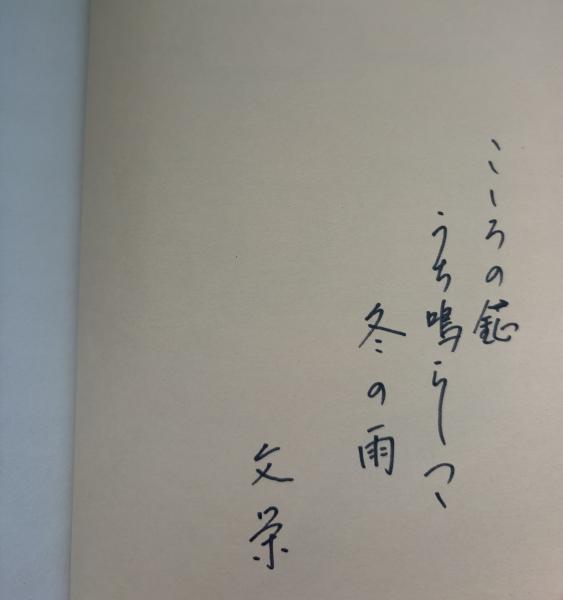 こゝろの鉦
うち鳴らしつゝ
冬の雨
文栄